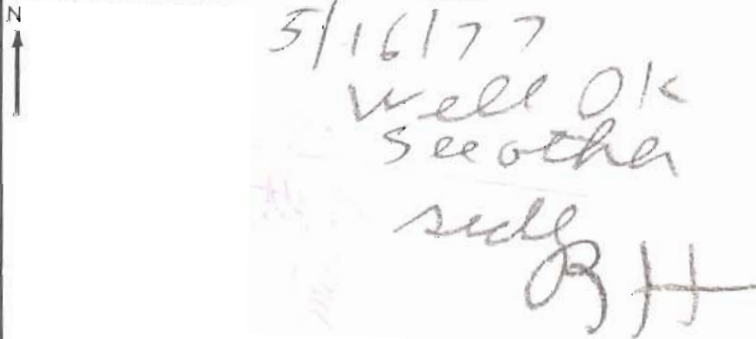 N
5/16/77
Well OK
See other
side
BH